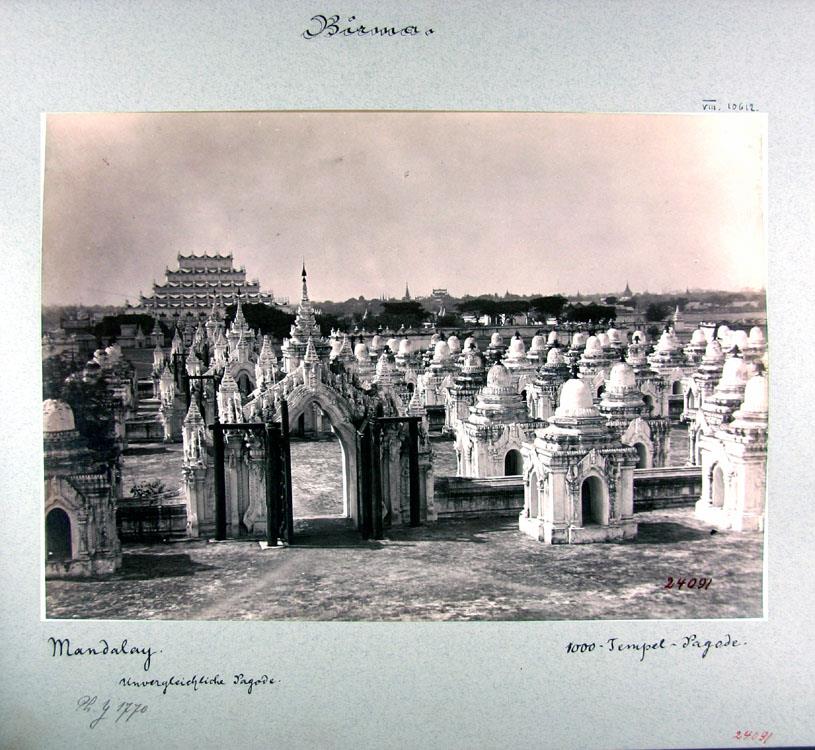 Birma.
VIII. 10612.
24091
Mandalay.
1000-Tempel-Pagode.
Unvergleichliche Pagode.
1770
24091